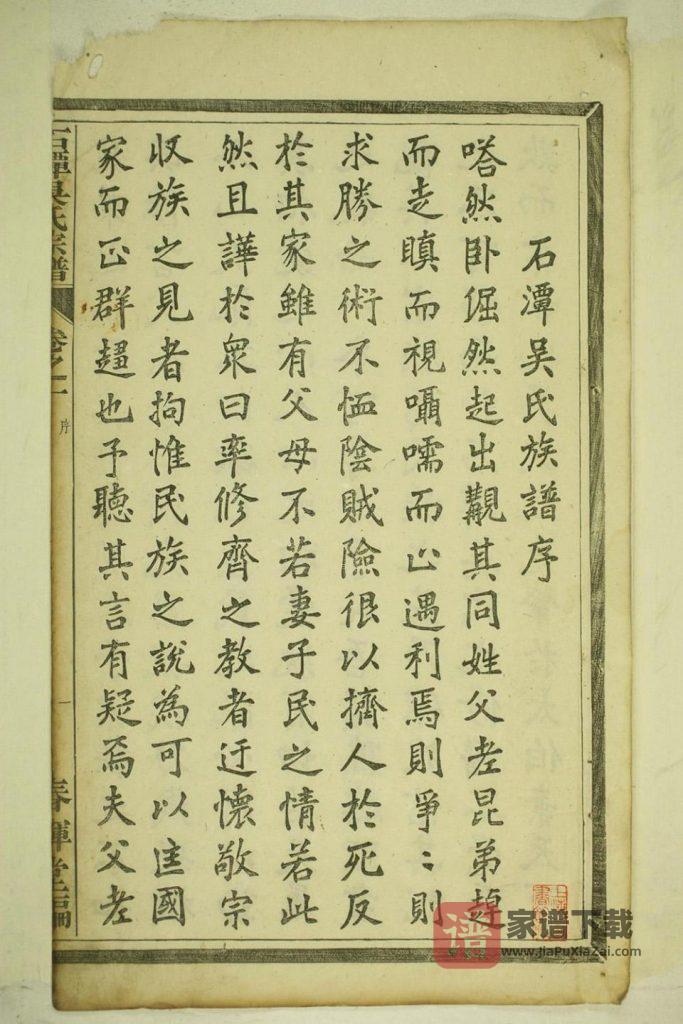 石潭吳氏族譜序
嗒然卧倔然起出覯其同姓父老昆弟趠
而走瞋而視囁嚅而止遇利焉則爭〻則
求勝之術不恤陰賊險很以擠人於死反
於其家雖有父母不若妻子民之情若此
然且譁於眾曰率修齊之教者迂懷敬宗
收族之見者拘惟民族之說為可以匡國
家而正群趨也予聽其言有疑焉夫父老
石潭吳氏宗譜 卷之一 序 一 春暉堂編
谱 家谱下载
www.jiaPuXiaZai.com